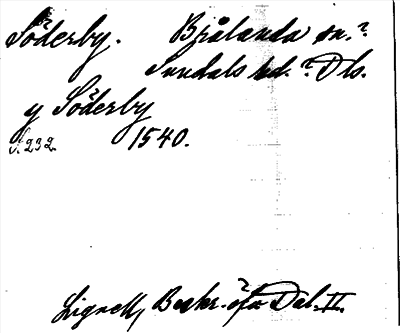 Söderby. Bjälanda sn.?
Sundals hd.? Dls.
y Söderby
S. 232. 1540.
Lignell, Beskr. öfv. Dal. II.